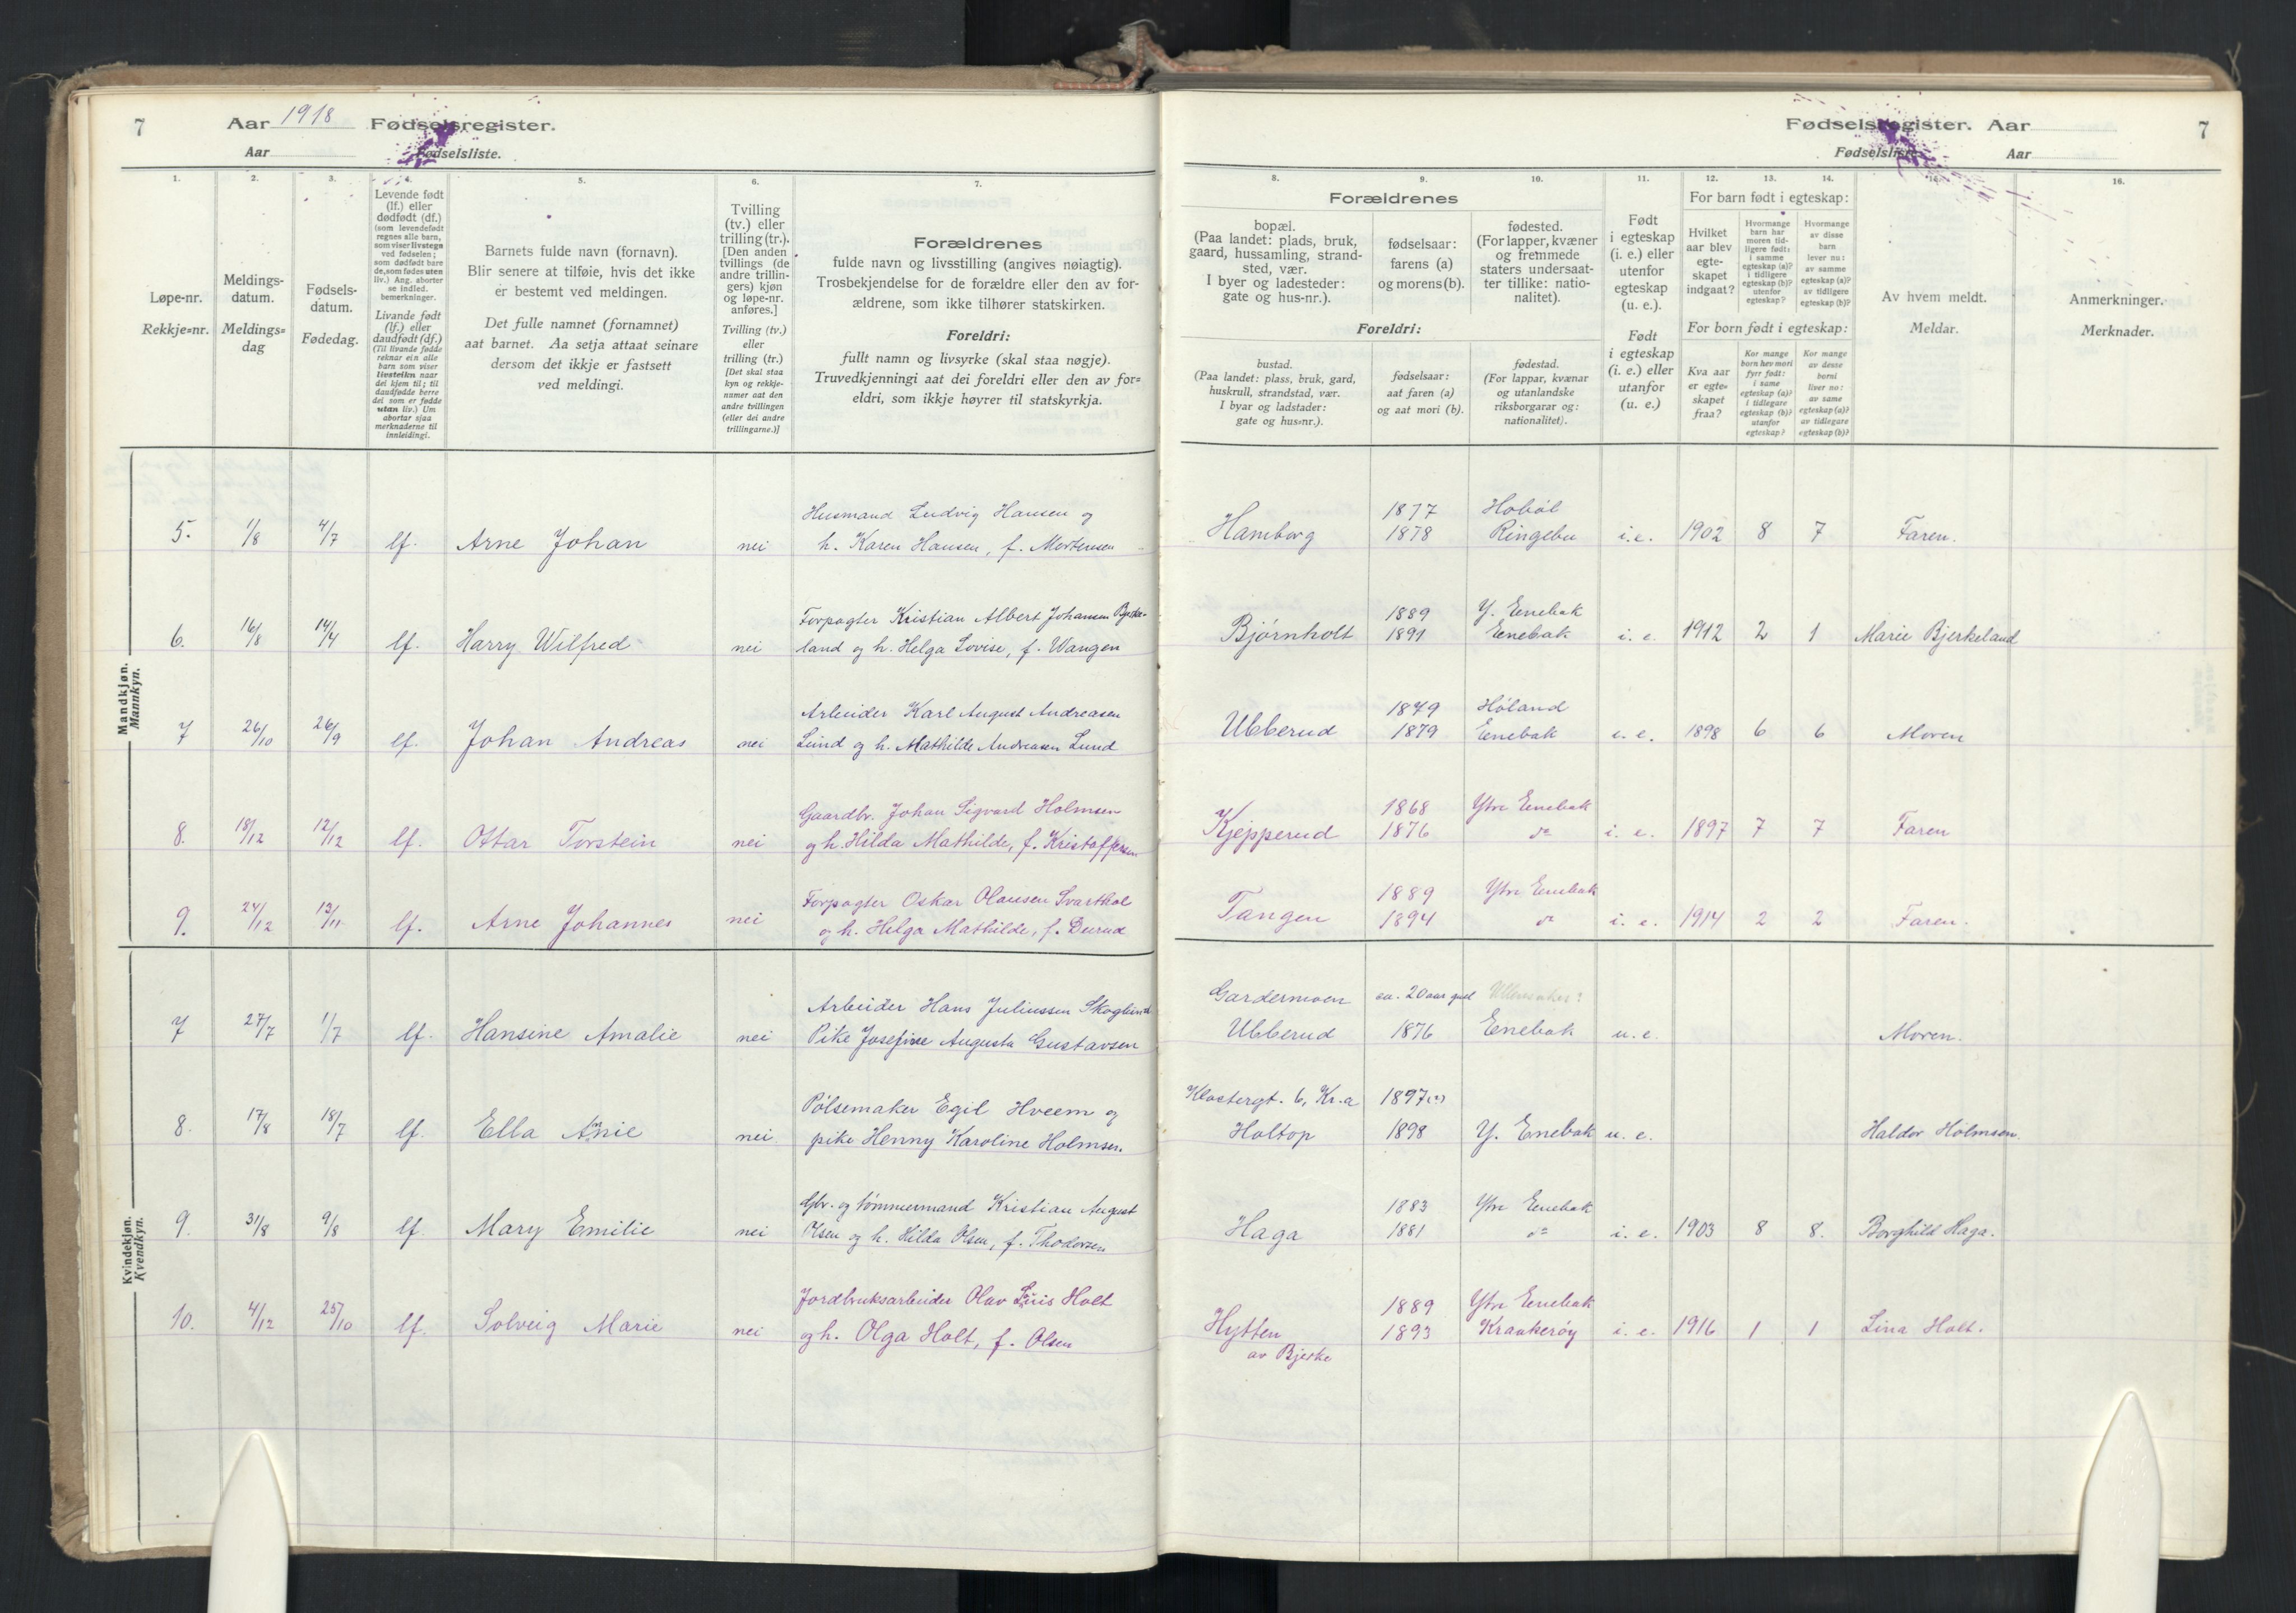 7 Aar 1918 Fødselsregister.
Aar Fødselsliste.
Fødselsregister. Aar 7
Fødselsliste Aar
1. 2. 3. 4. 5. 6. 7.
Løpe-nr.
Rekkje=nr.
Meldings-
datum.
Meldings=
dag
Fødsels-
datum.
Fødedag.
Levende født
(lf.) eller
dødfødt (df.)
(som levendefødt
regnes alle barn,
som viser livstegn
ved fødselen;
som dødfødt bare
de, som fødes uten
liv.) Ang. aborter
se indled.
bemerkninger.
Livande født
(lf.) eller
daudfødt (df.)
(Til livande fødde
reknar ein alle
barn som viser
livsteikn naar
dei kjem til; til
daudfødde berre
dei som er fødde
utan liv.) Um
abortar sjaa
merknaderne til
innleidingi.
Barnets fulde navn (fornavn).
Blir senere at tilføie, hvis det ikke
er bestemt ved meldingen.
Det fulle namnet (fornamnet)
aat barnet. Aa setja attaat seinare
dersom det ikkje er fastsett
ved meldingi.
Tvilling
(tv.) eller
trilling (tr.).
[Den anden
tvillings (de
andre trillin-
gers) kjøn
og løpe-nr.
anføres.]
Tvilling (tv.)
eller
trilling (tr.)
[Det skal staa
kyn og rekkje-
numer aat den
andre tvillingen
(eller dei andre
trillingarne.)]
Forældrenes
fulde navn og livsstilling (angives nøiagtig).
Trosbekjendelse for de forældre eller den av for-
ældrene, som ikke tilhører statskirken.
Foreldri:
fullt namn og livsyrke (skal staa nøgje).
Truvedkjenningi aat dei foreldri eller den av for=
eldri, som ikkje høyrer til statskyrkja.
8. 9. 10. 11. 12. 13. 14. 16.
Forældrenes
bopæl.
(Paa landet: plads, bruk,
gaard, hussamling, strand-
sted, vær.
I byer og ladesteder:
gate og hus-nr.).
fødselsaar:
farens (a)
og morens (b).
fødested.
(For lapper, kvæner
og fremmede
staters undersaat-
ter tillike: natio-
nalitet).
Foreldri:
bustad.
(Paa landet: plass, bruk, gard,
huskrull, strandstad, vær.
I byar og ladstader:
gate og hus=nr.).
fødselsaar:
aat faren (a)
og aat mori (b).
fødestad.
(For lappar, kvænar
og utanlandske
riksborgarar og:
nationalitet).
Født
i egteskap
(i. e.) eller
utenfor
egteskap
(u. e.).
Født
i egteskap
(i. e.) eller
utanfor
(u. e.)
For barn født i egteskap:
Hvilket
aar blev
egte-
skapet
indgaat?
Hvormange
barn har
moren tid-
ligere født:
i samme
egteskap (a)?
i tidligere
egteskap (b)?
utenfor
egteskap?
Hvormange
av disse
barn
lever nu:
av samme
egteskap (a)?
av tidligere
egteskap (b)?
For born født i egteskap:
Kva aar
er egte=
skapet
fraa?
Kor mange
born hev mori
fyrr født:
i same
egteskap (a)?
i tidlegare
egteskap (b)?
utanfor
egteskap?
Kor mange
av desse
borni
liver no:
av same
egteskap (a)?
av tidlegare
egteskap (b)?
Av hvem meldt.
Meldar.
Anmerkninger.
Merknader.
Mandkjøn.
Mannkyn.
Husmand Ludvig Hansen og 1877 Hobøl
5. 1/8 4/7 lf. Arne Johan nei h. Karen Hansen, f. Mortensen Hamborg 1878 Ringebu i.e. 1902 8 7 Faren.
Forpagter Kristian Albert Johansen Bjerke- 1889 Y. Enebak
6. 16/8 14/4 lf. Harry Wilfred nei land og h. Helga Lovise, f. Wangen Bjørnholt 1891 Enebak i. e. 1912 2 1 Marie Bjerkeland
Arbeider Karl August Andreasen 1879 Høland
7 26/10 26/9 lf. Johan Andreas nei Lund og h. Mathilde Andreasen Lund Ubberud 1879 Enebak i. e. 1898 6 6 Moren
Gaardbr. Johan Sigvard Holmsen 1868 Ytre Enebak
8. 18/12 12/12 lf. Ottar Torstein nei og h. Hilda Mathilde, f. Kristoffersen Kjepperud 1876 do i. e. 1897 7 7 Faren
Forpagter Oskar Olausen Svarthol 1889 Ytre Enebak
9. 24/12 13/11 lf. Arne Johannes nei og h. Helga Mathilde, f. Durud Tangen 1894 do i. e. 1914 2 2 Faren.
Kvindekjøn.
Kvendkyn.
Arbeider Hans Juliussen Skoglund Gardermoen ca. 20 aar gml Ullensaker?
7 27/7 1/7 lf. Hansine Amalie nei Pike Josefine Augusta Gustavsen Ubberud 1876 Enebak u. e. Moren.
Pølsemaker Egil Hveem og Klostergt. 6, Kr.a 1897(?)
8. 17/8 18/7 lf. Ella Annie nei pike Henny Karoline Holmsen. Holtop 1898 Y. Enebak u. e. Haldor Holmsen
Gbr. og tømmermand Kristian August 1883 Ytre Enebak
9. 31/8 9/8 lf. Mary Emilie nei Olsen og h. Hilda Olsen, f. Thodorsen Haga 1881 do i. e. 1903 8 8. Borghild Haga.
Jordbruksarbeider Olav Luis Holt 1889 Ytre Enebak
10. 4/12 25/10 lf. Solveig Marie nei og h. Olga Holt, f. Olsen Hytten 1893 Kraakerøy i. e. 1916 1 1 Lina Holt.
av Bjerke